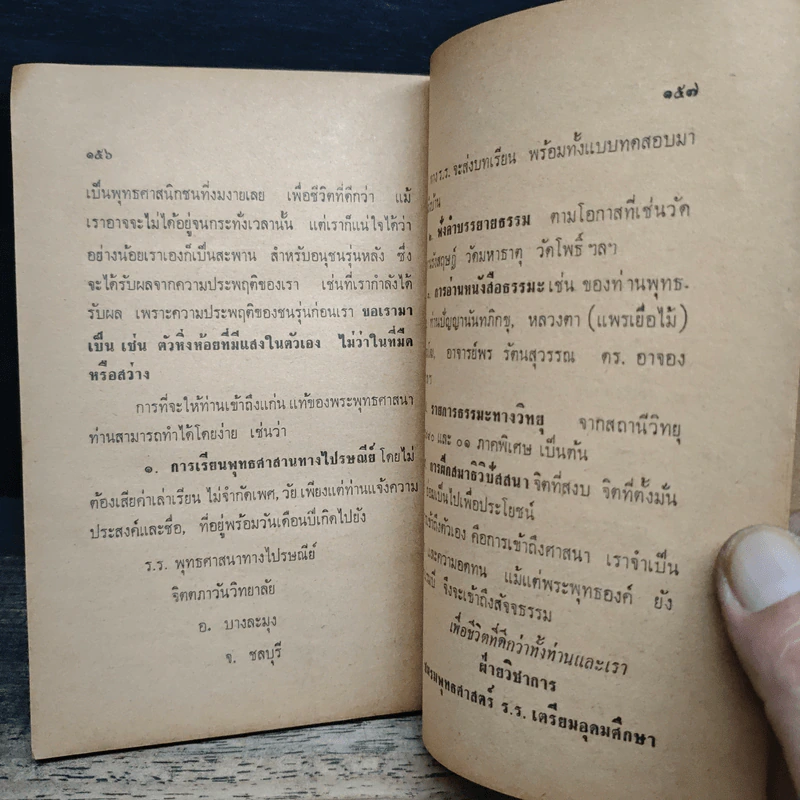 ๑๕๖
เป็นพุทธศาสนิกชนที่งมงายเลย เพื่อชีวิตที่ดีกว่า แม้
เราอาจจะไม่ได้อยู่จนกระทั่งเวลานั้น แต่เราก็แน่ใจได้ว่า
อย่างน้อยเราเองก็เป็นสะพาน สำหรับอนุชนรุ่นหลัง ซึ่ง
จะได้รับผลจากความประพฤติของเรา เช่นที่เรากำลังได้
รับผล เพราะความประพฤติของชนรุ่นก่อนเรา ขอเรามา
เป็น เช่น ตัวหิ่งห้อยที่มีแสงในตัวเอง ไม่ว่าในที่มืด
หรือสว่าง
การที่จะให้ท่านเข้าถึงแก่น แท้ของพระพุทธศาสนา
ท่านสามารถทำได้โดยง่าย เช่นว่า
๑. การเรียนพุทธสาสนทางไปรษณีย์ โดยไม่
ต้องเสียค่าเล่าเรียน ไม่จำกัดเพศ, วัย เพียงแต่ท่านแจ้งความ
ประสงค์และชื่อ, ที่อยู่พร้อมวันเดือนปีเกิดไปยัง
ร.ร. พุทธศาสนาทางไปรษณีย์
จิตตภาวันวิทยาลัย
อ. บางละมุง
จ. ชลบุรี
๑๕๗
ทาง ร.ร. จะส่งบทเรียน พร้อมทั้งแบบทดสอบมา
ฟังคำบรรยายธรรม ตามโอกาสที่เช่นวัด
วัดมหาธาตุ วัดโพธิ์ ฯลฯ
การอ่านหนังสือธรรมะ เช่น ของท่านพุทธ-
ท่านปัญญานันทภิกขุ, หลวงตา (แพรเยื่อไม้)
อาจารย์พร รัตนสุวรรณ ดร. อาจอง
รายการธรรมะทางวิทยุ จากสถานีวิทยุ
และ ๐๑ ภาคพิเศษ เป็นต้น
การฝึกสมาธิวิปัสสนา จิตที่สงบ จิตที่ตั้งมั่น
เป็นไปเพื่อประโยชน์
ถึงตัวเอง คือการเข้าถึงศาสนา เราจำเป็น
และความอดทน แม้แต่พระพุทธองค์ ยัง
จึงจะเข้าถึงสัจจธรรม
เพื่อชีวิตที่ดีกว่าทั้งท่านและเรา
ฝ่ายวิชาการ
พุทธศาสตร์ ร.ร. เตรียมอุดมศึกษา